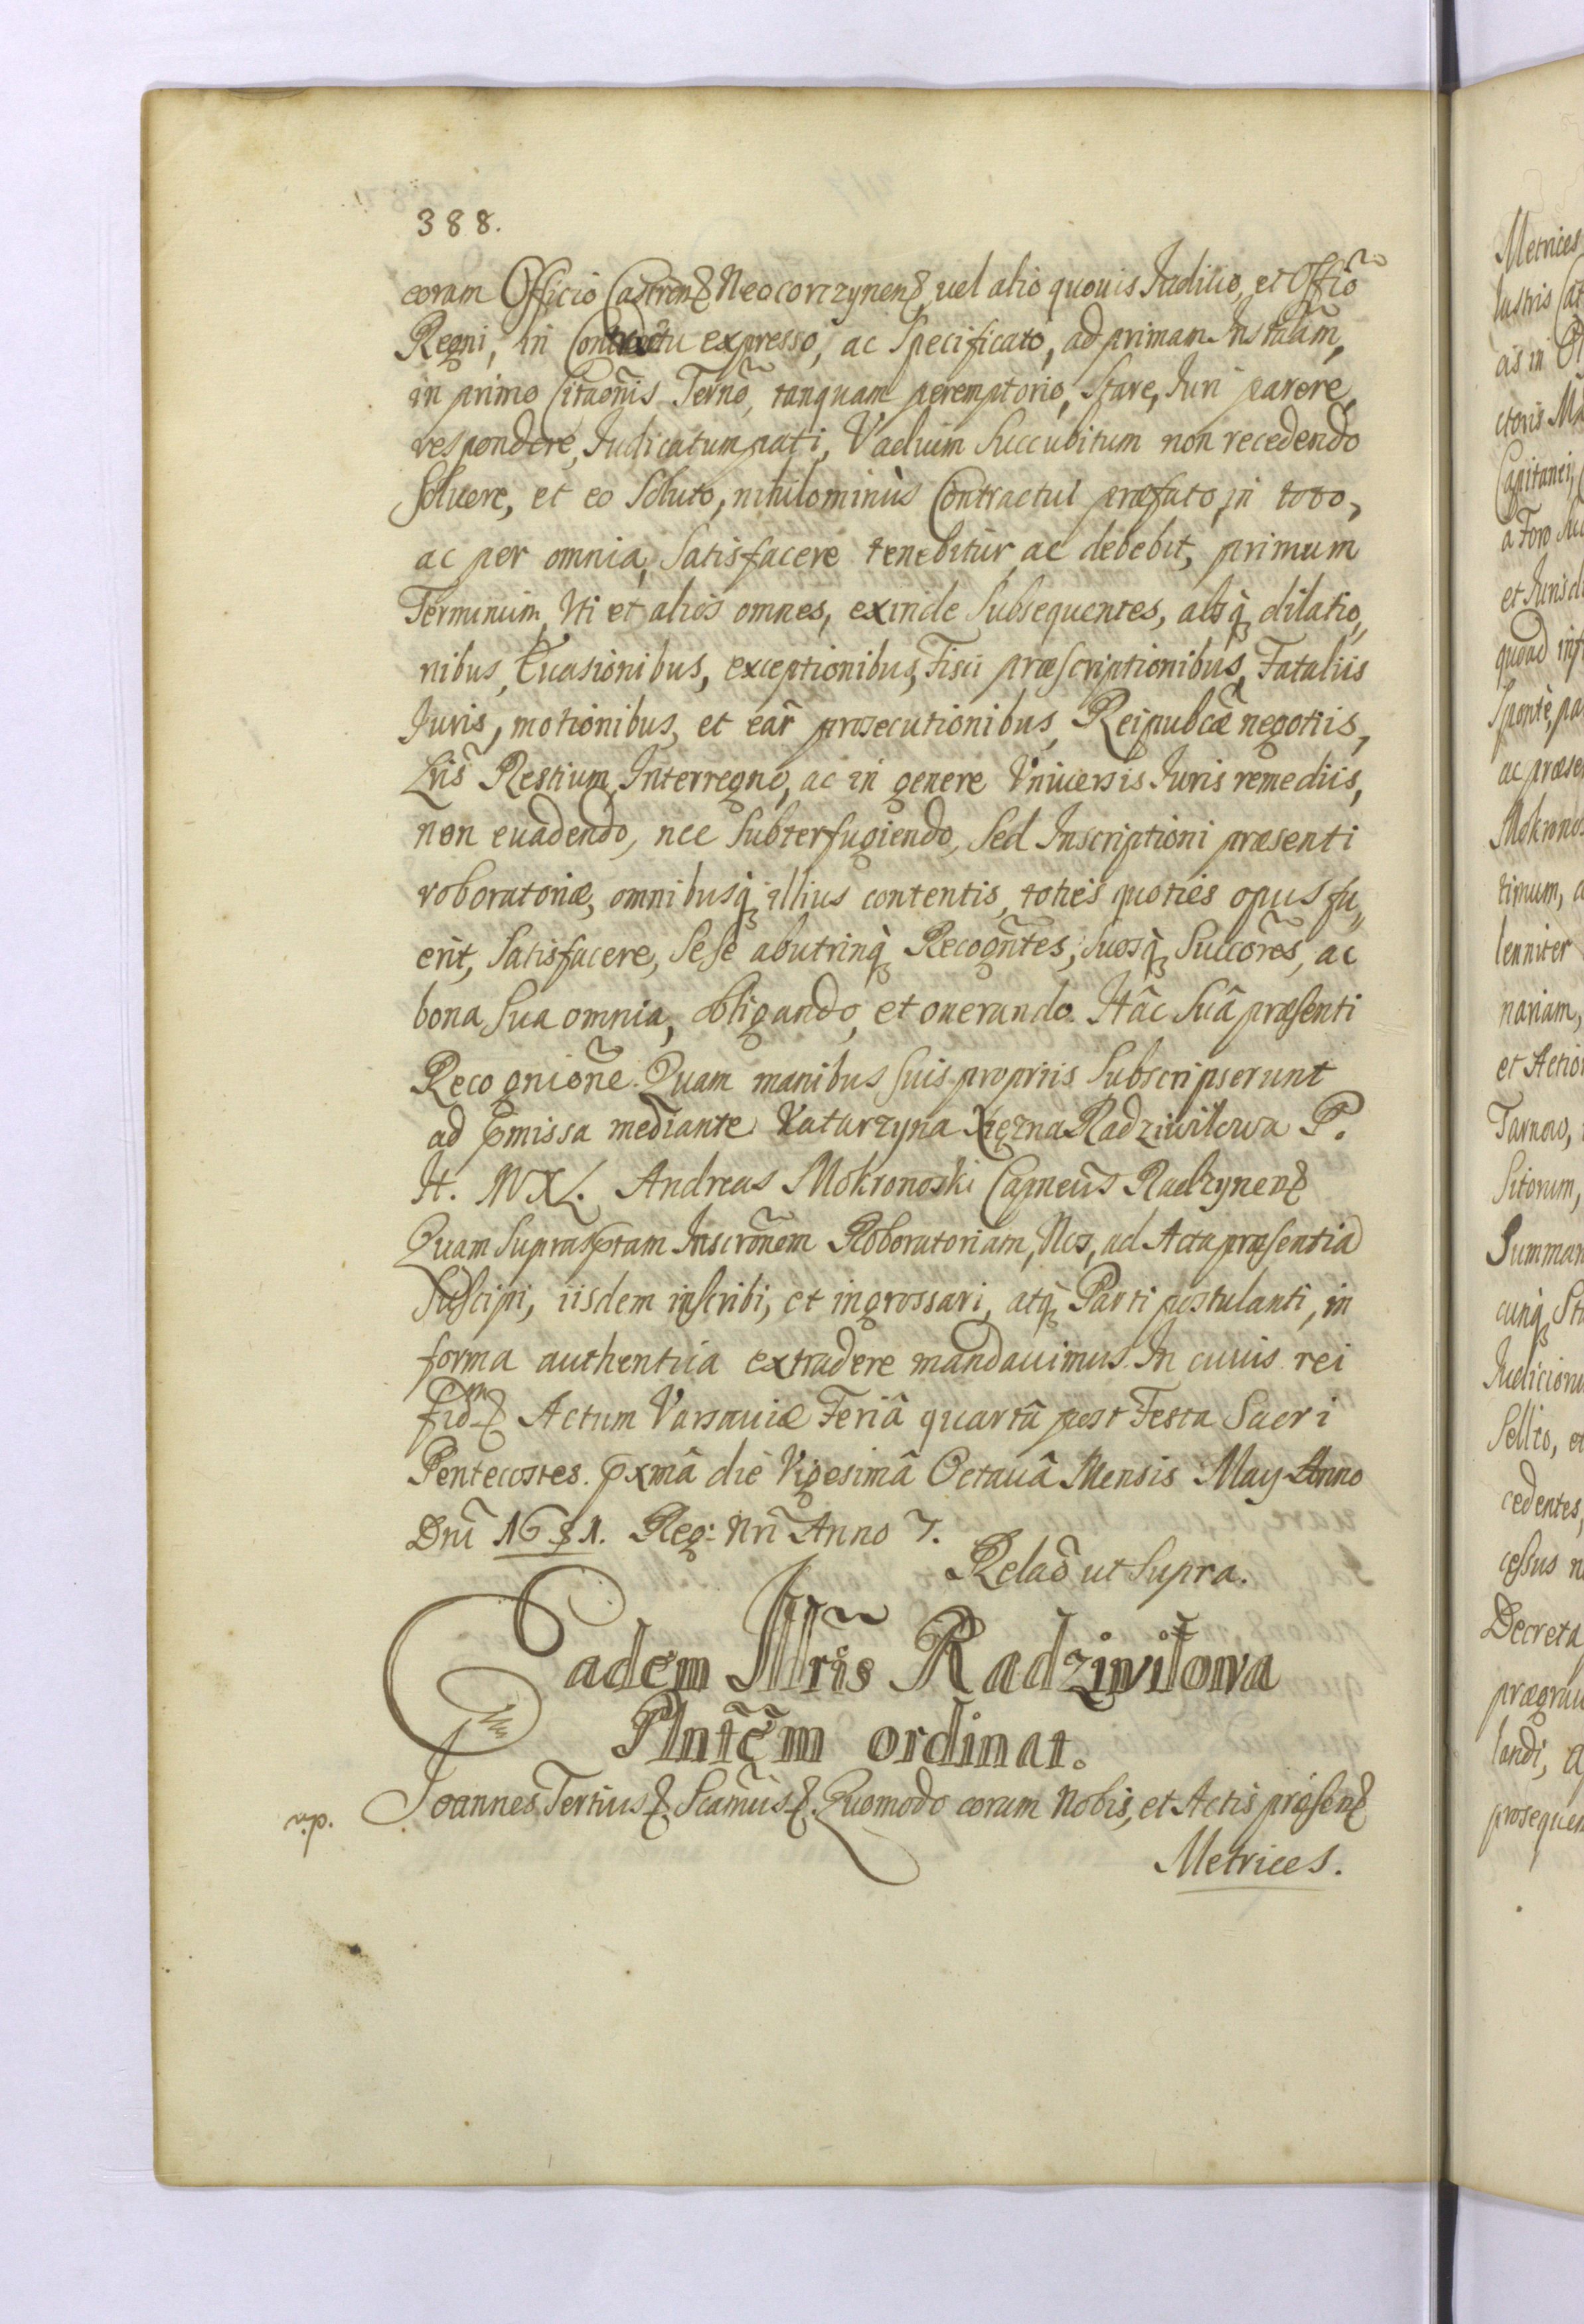 388.
coram Officio Castren Neocorczynen, uel alio quouis Iudicio, et Offiõ
Regni, in Contractu expresso, ac Specificato, ad primam Instãm,
in primo Citaõnis Terñо, tanquam peremptorio, Stare, Iuri parere,
respondere, Iudicatum pati, Vadium Succubitum non recedendo
Soluere, et eo Soluto, nihilominùs Contractui præfato, in toto,
ac per omnia, Satisfacere tenebitur, ac debebit, primum
Terminum, Vti et alios omnes, exinde Subsequentes, absq dilatio,,
nibus, Euasionibus, exceptionibus, Fisci præscriptionibus, Fataliis
Iuris, motionibus, et eãr prosecutionibus, Reipubcæ̃ negotiis,
Lris̃ Restium, Interregno, ac in genere Vniuersis Iuris remediis,
non euadendo, nec Subterfugiendo, Sed Inscriptioni præsenti
roboratoriæ, omnibusq illius contentis, toties quoties opus fu,,
erit, Satisfacere, Sese abutrinq Recogñtes, Suosq Succoñes, ac
bona Sua omnia, obligando, et onerando. Hâc Suâ præsenti
Recognioñe. Quam manibus suis propriis Subscripserunt
ad pmissa mediante Katarzyna Xięzna Radziwiłowa P.
H. W X L. Andreas Mokronoski Capneus̃ Radzynen
Quam Suprasptam Inscroñem Roboratoriam, Nos, ad Acta præsentia
Suscipi, iisdem inscribi, et ingrossari, atq Parti postulanti, in
forma authentica extradere mandauimus. In cuuis rei
fidm Actum Varsauiæ Feriâ quartâ post Festa Sacri
Pentecostes. pxmâ die Vigesimâ Octauâ Mensis May Anno
Dnĩ 1681. Reg: Nrĩ Anno 7.
Relaõ ut Supra.
Eadem Illris̃ Radziwiłowa
Plnte͂m ordinat.
Joannes Tertius Scamũs Quomodo coram Nobis, et Actis præsen
Metrices.